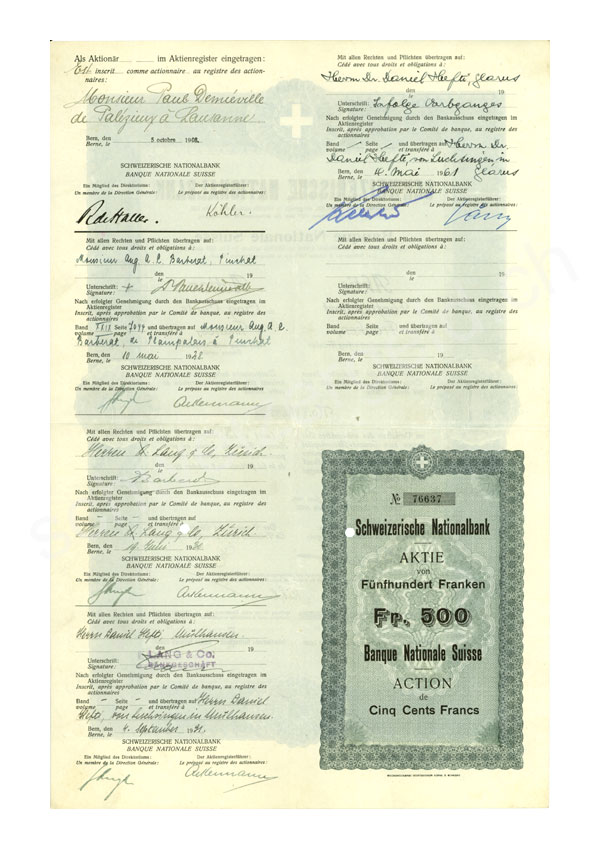 Als Aktionär im Aktienregister eingetragen:
Est inscrit comme actionnaire au registre des action-
naires:
Monsieur Paul Demiéville
de Palézieux à Lausanne
Bern, den
Berne, le 5 octobre
SCHWEIZERISCHE NATIONALBANK
BANQUE NATIONALE SUISSE
Ein Mitglied des Direktoriums: Der Aktienregisterführer:
Un membre de la Direction Générale: Le préposé au registre des actionnaires:
R de Haller. Köhler.
Mit allen Rechten und Pflichten übertragen auf:
Cédé avec tous droits et obligations à:
Monsieur Aug.
den
le 19
Unterschrift:
Signature:
Nach erfolgter Genehmigung durch den Bankausschuss eingetragen im
Aktienregister
Inscrit, après approbation par le Comité de banque, au registre des
actionnaires
Band Seite und übertragen auf Monsieur Aug.
volume page et transféré à
Bern, den
Berne, le 10 mai
SCHWEIZERISCHE NATIONALBANK
BANQUE NATIONALE SUISSE
Ein Mitglied des Direktoriums: Der Aktienregisterführer:
Un membre de la Direction Générale: Le préposé au registre des actionnaires:
Ackermann
Mit allen Rechten und Pflichten übertragen auf:
Cédé avec tous droits et obligations à:
Herren A. Läng & Co, Zürich
den
le 19
Unterschrift:
Signature:
Nach erfolgter Genehmigung durch den Bankausschuss eingetragen im
Aktienregister
Inscrit, après approbation par le Comité de banque, au registre des
actionnaires
Band – Seite – und übertragen auf
volume page et transféré à
Herren A. Läng & Co, Zürich
Bern, den
Berne, le
SCHWEIZERISCHE NATIONALBANK
BANQUE NATIONALE SUISSE
Ein Mitglied des Direktoriums: Der Aktienregisterführer:
Un membre de la Direction Générale: Le préposé au registre des actionnaires:
Ackermann
Mit allen Rechten und Pflichten übertragen auf:
Cédé avec tous droits et obligations à:
Herrn Daniel Hefti, Mülhausen
LÄNG & Co.
BANKGESCHÄFT
Unterschrift:
Signature:
Nach erfolgter Genehmigung durch den Bankausschuss eingetragen im
Aktienregister
Inscrit, après approbation par le Comité de banque, au registre des
actionnaires
Band – Seite – und übertragen auf Herrn Daniel
volume page et transféré à
Hefti, von Luchsingen in Mülhausen
Bern, den
Berne, le 4. September
SCHWEIZERISCHE NATIONALBANK
BANQUE NATIONALE SUISSE
Ein Mitglied des Direktoriums: Der Aktienregisterführer:
Un membre de la Direction Générale: Le préposé au registre des actionnaires:
Ackermann
Mit allen Rechten und Pflichten übertragen auf:
Cédé avec tous droits et obligations à:
Herrn Dr. Daniel Hefti, Glarus
den
le 19
Unterschrift: Infolge Erbganges
Signature:
Nach erfolgter Genehmigung durch den Bankausschuss eingetragen im
Aktienregister
Inscrit, après approbation par le Comité de banque, au registre des
actionnaires
Band – Seite – und übertragen auf Herrn Dr.
volume page et transféré à
Daniel Hefti, von Luchsingen, in
Glarus
Bern, den
Berne, le 4. Mai 1961
SCHWEIZERISCHE NATIONALBANK
BANQUE NATIONALE SUISSE
Ein Mitglied des Direktoriums: Der Aktienregisterführer:
Un membre de la Direction Générale: Le préposé au registre des actionnaires:
Mit allen Rechten und Pflichten übertragen auf:
Cédé avec tous droits et obligations à:
den
le 19
Unterschrift:
Signature:
Nach erfolgter Genehmigung durch den Bankausschuss eingetragen im
Aktienregister
Inscrit, après approbation par le Comité de banque, au registre des
actionnaires
Band Seite und übertragen auf
volume page et transféré à
Bern, den
Berne, le 19
SCHWEIZERISCHE NATIONALBANK
BANQUE NATIONALE SUISSE
Ein Mitglied des Direktoriums: Der Aktienregisterführer:
Un membre de la Direction Générale: Le préposé au registre des actionnaires:
№ 76637
Schweizerische Nationalbank
AKTIE
von
Fünfhundert Franken
Fr. 500
Banque Nationale Suisse
ACTION
de
Cinq Cents Francs